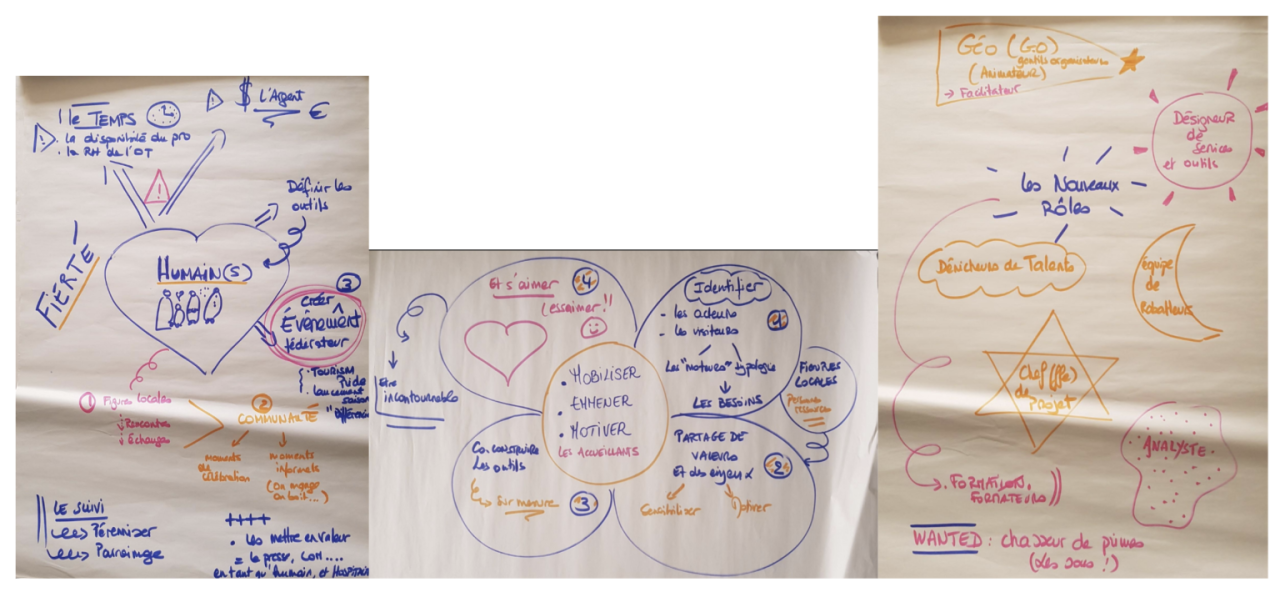 le TEMPS
. la disponibilité du pro
. la RH de l'OT
$ L'Argent
€
Définir les
outils
FIÉRTÉ
HUMAIN(S)
3
Créer
Évènement
fédérateur
. TOURISM
Pride
lancement
saison
1 Figures locales
↓ Rencontres
↓ échanges
2
COMMUNAUTÉ
moments
de
célébration
moments
informels
(on mange
on boit...)
LE SUIVI
Péreniser
Parrainage
. Les mettre en valeur
= la presse, com....
en tant qu'humain, et
Et s'aimer 4
(essaimer!!
être
incontournable
Identifier
- les acteurs
- les visiteurs
1
Les "moteurs" typologie
↓
LES BESOINS
FIGURES
LOCALES
Personnes
ressources
. MOBILISER
. EMMENER
. MOTIVER
LES ACCUEILLANTS
Co.construire
Les outils
Sur mesure
3
PARTAGE DE
VALEURS
Et des enjeux
2
Sensibiliser
GÉO (GO)
gentils organisateurs
(Animateur)
→ Facilitateur
DÉSIGNEUR
de
Services
et outils
Les Nouveaux
Rôles
Dénicheurs de Talents
équipe
de
Rabatteurs
Chef(ffe)
de
PROJET
ANALYSTE
. FORMATION,
FORMATEURS
WANTED : chasseur de primes
(Les sous !)